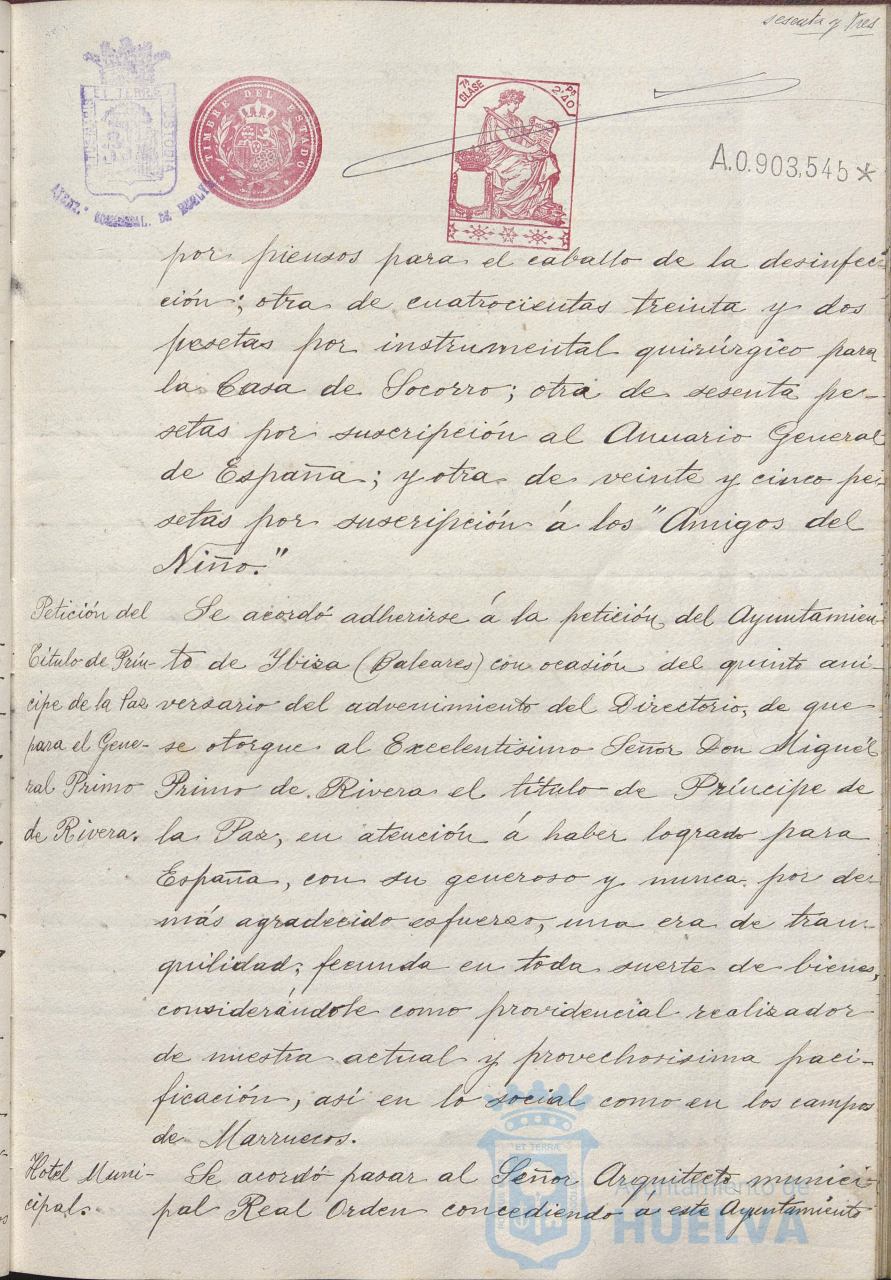 sesenta y tres
ET TERRÆ
CUSTODIA
AYUNT.º CONSTITUCIONAL DE HUELVA
TIMBRE DEL ESTADO
7ª CLASE
Ps 2'40
A.0.903,545*
por piensos para el caballo de la desinfec-
ción; otra de cuatrocientas treinta y dos
pesetas por instrumental quirúrgico para
la Casa de Socorro; otra de sesenta pe-
setas por suscripción al Anuario General
de España; y otra de veinte y cinco pe-
setas por suscripción á los "Amigos del
Niño."
Petición del
Título de Prín-
cipe de la Paz
para el Gene-
ral Primo
de Rivera.
Se acordó adherirse á la petición del Ayuntamien
to de Ybiza (Baleares) con ocasión del quinto ani-
versario del advenimiento del Directorio, de que
se otorgue al Excelentísimo Señor Don Miguél
Primo de Rivera el título de Príncipe de
la Paz, en atención á haber logrado para
España, con su generoso y nunca por de-
más agradecido esfuerzo, una era de tran-
quilidad, fecunda en toda suerte de bienes,
considerándole como providencial realizador
de nuestra actual y provechosisima paci-
ficación, así en lo social como en los campos
de Marruecos.
Hotel Muni-
cipal.
Se acordó pasar al Señor Arquitecto munici-
pal Real Orden concediendo á este Ayuntamiento
ET TERRÆ
Ayuntamiento de
HUELVA